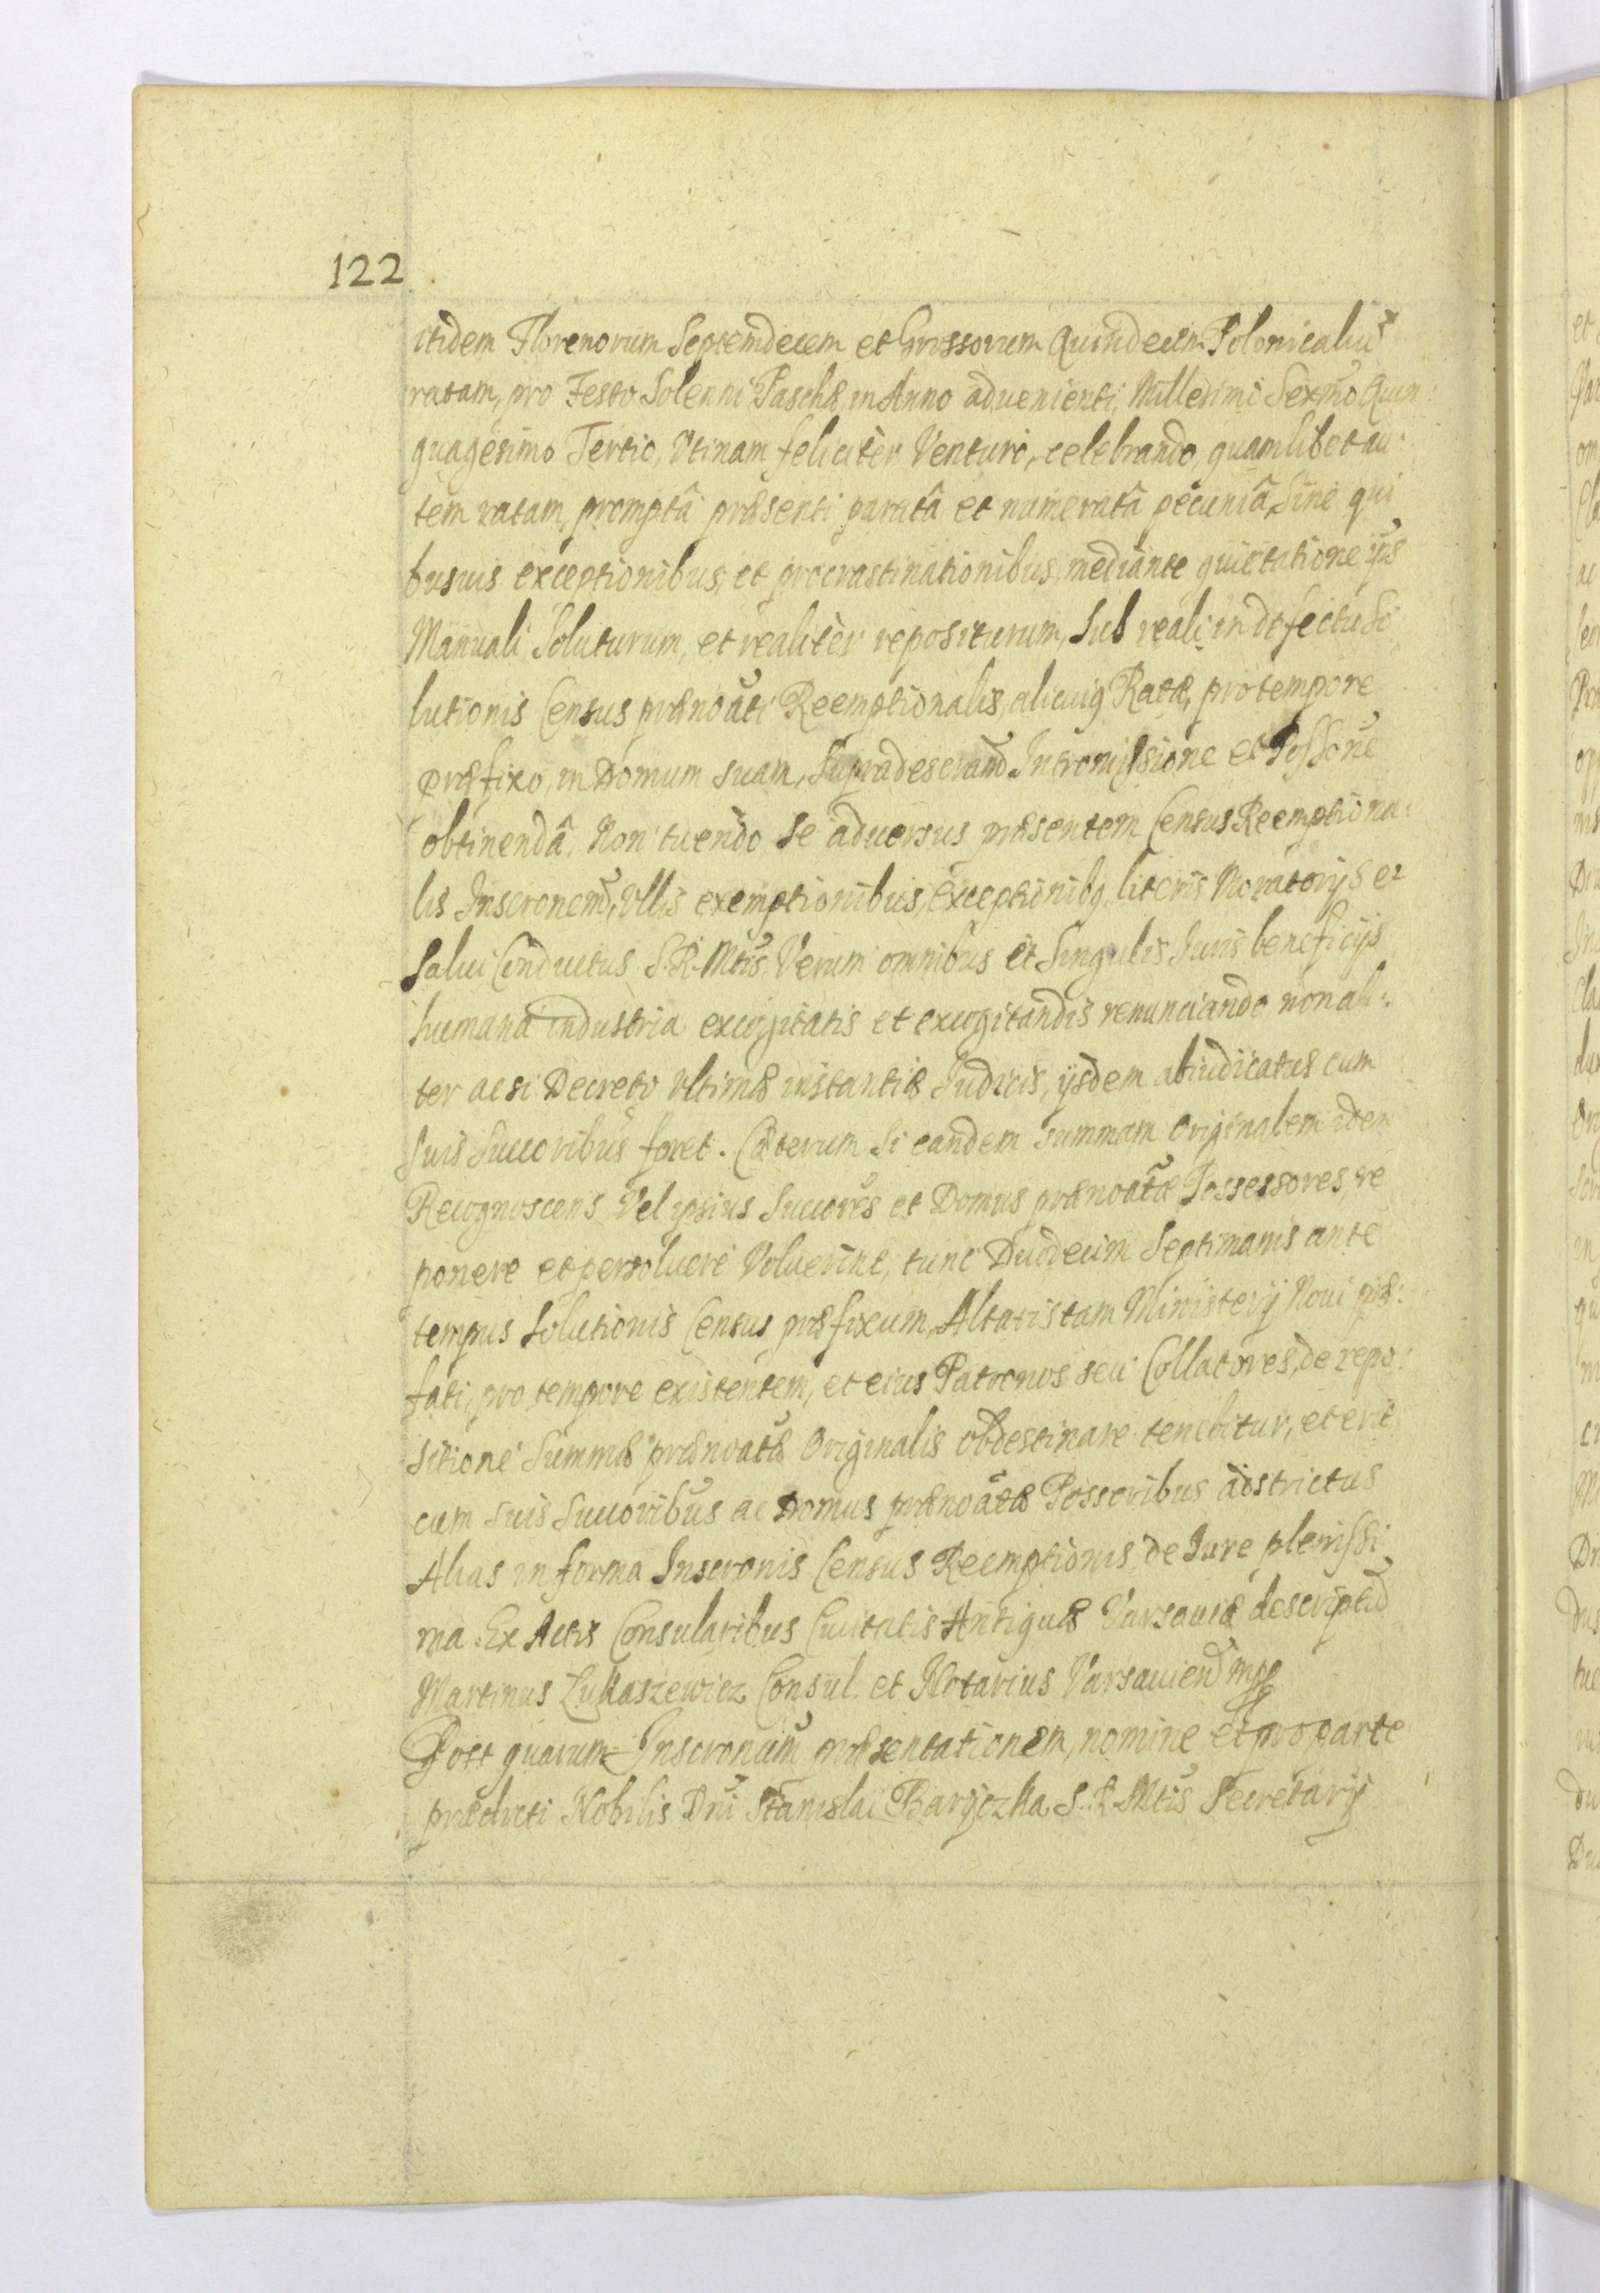 122
itidem Florenorum Septemdecem et Grossorum Quindecim Polonicaliũ
ratam, pro Festo Solenni Paschæ in Anno advenienti, Millesimo Sexmõ Quin:
quagesimo Tertio, Utinam feliciter Venturo, celebrando, quamlibet au:
tem ratam, promptâ præsenti paratâ et numeratâ pecuniâ, sine qui
busvis exceptionibus, et procrastinationibus, mediante quietatione ijs
Manuali Soluturum, et realiter repositurum, Sub reali in defectu So
lutionis Census prænoãti Reemptionalis, alicuius Ratæ, pro tempore
præfixo, in Domum suam, Supradescriam̃ Intromissione et Possonẽ
obtinendâ, Non tuendo se adversus præsentem Census Reemptiona:
lis Inscronem̃, Ullis exemptionibus, exceptionibq literis Moratorijs et
Salvi Conductus S. R. Mtis, Verum omnibus et Singulis Juris beneficijs
humana industria excogitatis et excogitandis renunciando non ali:
ter ac si Decreto Ultimæ instantiæ Judicis, ijsdem abiudicatus cum
suis Succoribus foret. Cæterum Si eandem summam Originalem idem
Recognoscens Vel ipsius Succores et Domus prænoãtæ Possessores, re
ponere et persolvere Voluerint, tunc Duodecim Septimanis ante
tempus Solutionis Census præfixum, Altaristam Ministerij Novi præ:
fati, pro tempore existentem, et eius Patronos seu Collatores, de repo:
sitione Summæ prænoatæ Originalis obdestinare tenebitur, et erit
cum suis Succoribus ac Domus prænoãtæ Possoribus adstrictus
Alias in forma Inscronis Census Reemptionis de Jure plenissi
ma. Ex Actis Consularibus Civitatis Antiquæ Varsaviæ descriptũ
Martinus Łukaszewicz Consul et Notarius Varsavien̄ mpp
Post quarum Inscronum præsentationem, nomine et pro parte
prædicti Nobilis Dñi Stanislai Baryczka S. R. Mtis Secretarij